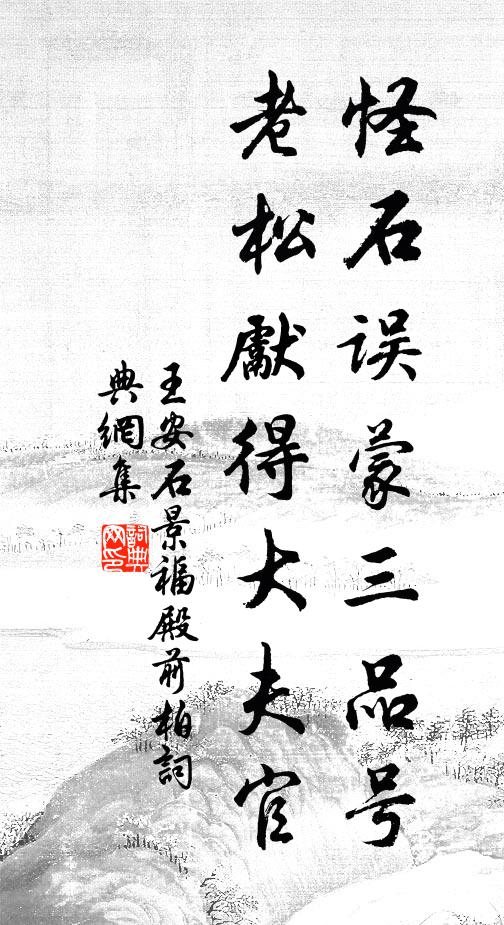 怪石误蒙三品号
老松獻得大夫官
王安石景福殿前柏詞
典網集
詞典网印